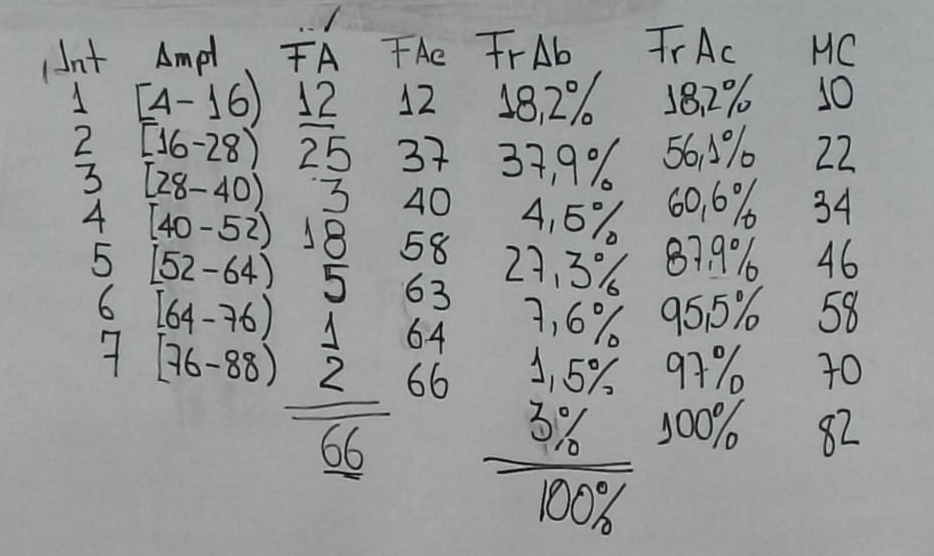 Int Ampl FA FAc FrAb FrAc MC
1 [4-16) 12 12 18,2% 18,2% 10
2 [16-28) 25 37 37,9% 56,1% 22
3 [28-40) 3 40 4,5% 60,6% 34
4 [40-52) 18 58 27,3% 87,9% 46
5 [52-64) 5 63 7,6% 95,5% 58
6 [64-76) 1 64 1,5% 97% 70
7 [76-88) 2 66 3% 100% 82
66 100%